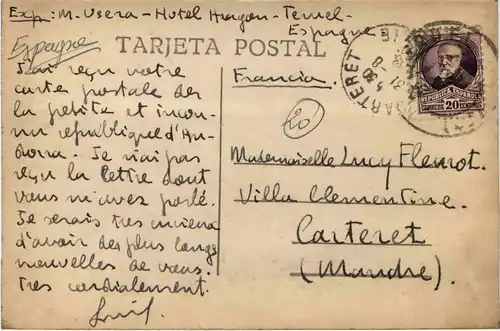 Exp: M. Usera - Hotel Aragon - Teruel -
Espagne
Espagne
TARJETA POSTAL
Francia.
CARTERET
REPUBLICA ESPAÑOLA
CORREOS 20 CENTIMOS
20
J'ai reçu votre
carte postale de
la petite et incon-
nu république d'An-
dorra. Je n'ai pas
reçu la lettre dont
vous m'avez parlé.
Je serais tres
d'avoir des plus longs
nouvelles de vous.
Tres cordialement.
Mademoiselle Lucy Flemot.
Villa Clementine.
Carteret
(Manche).